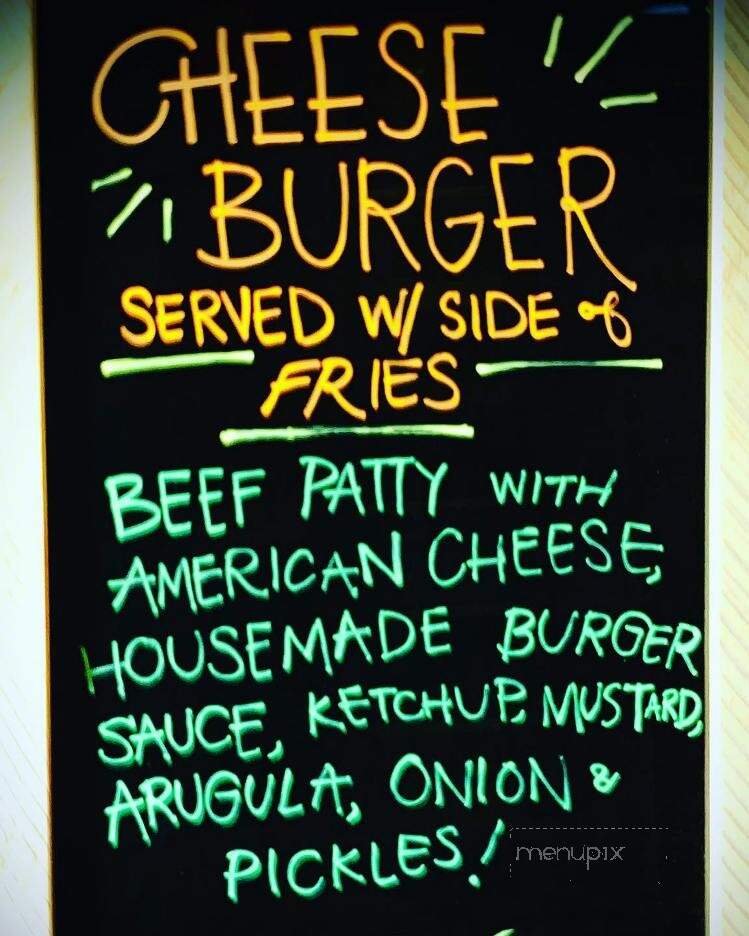 CHEESE
BURGER
SERVED W/ SIDE of
FRIES
BEEF PATTY WITH
AMERICAN CHEESE,
HOUSEMADE BURGER
SAUCE, KETCHUP, MUSTARD,
ARUGULA, ONION &
PICKLES!
menupix